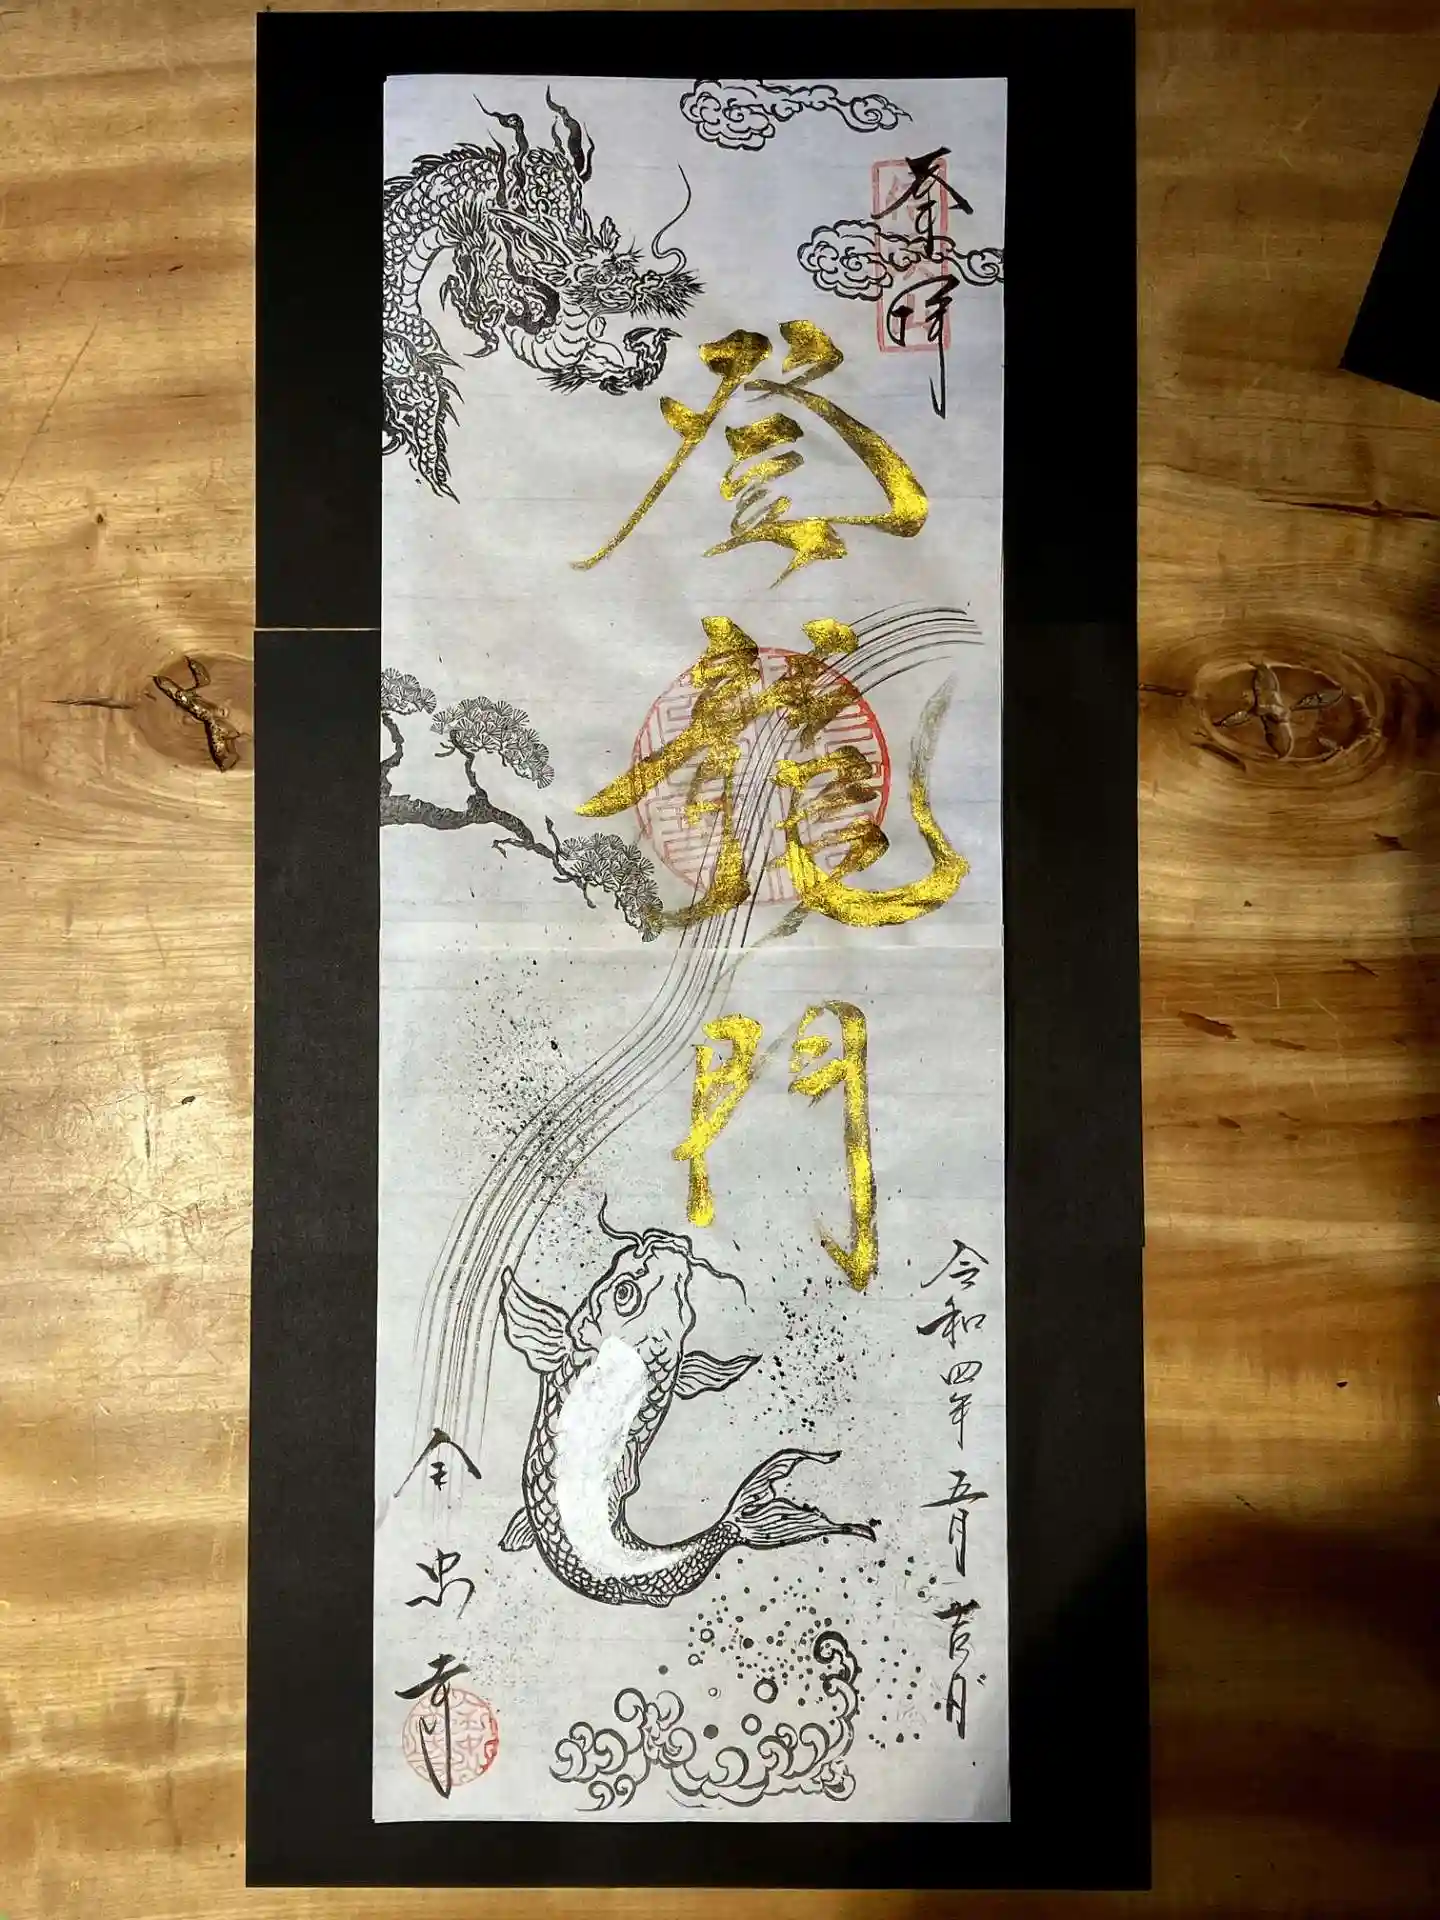 奉拝
登龍門
令和四年 五月 吉日
全忠寺